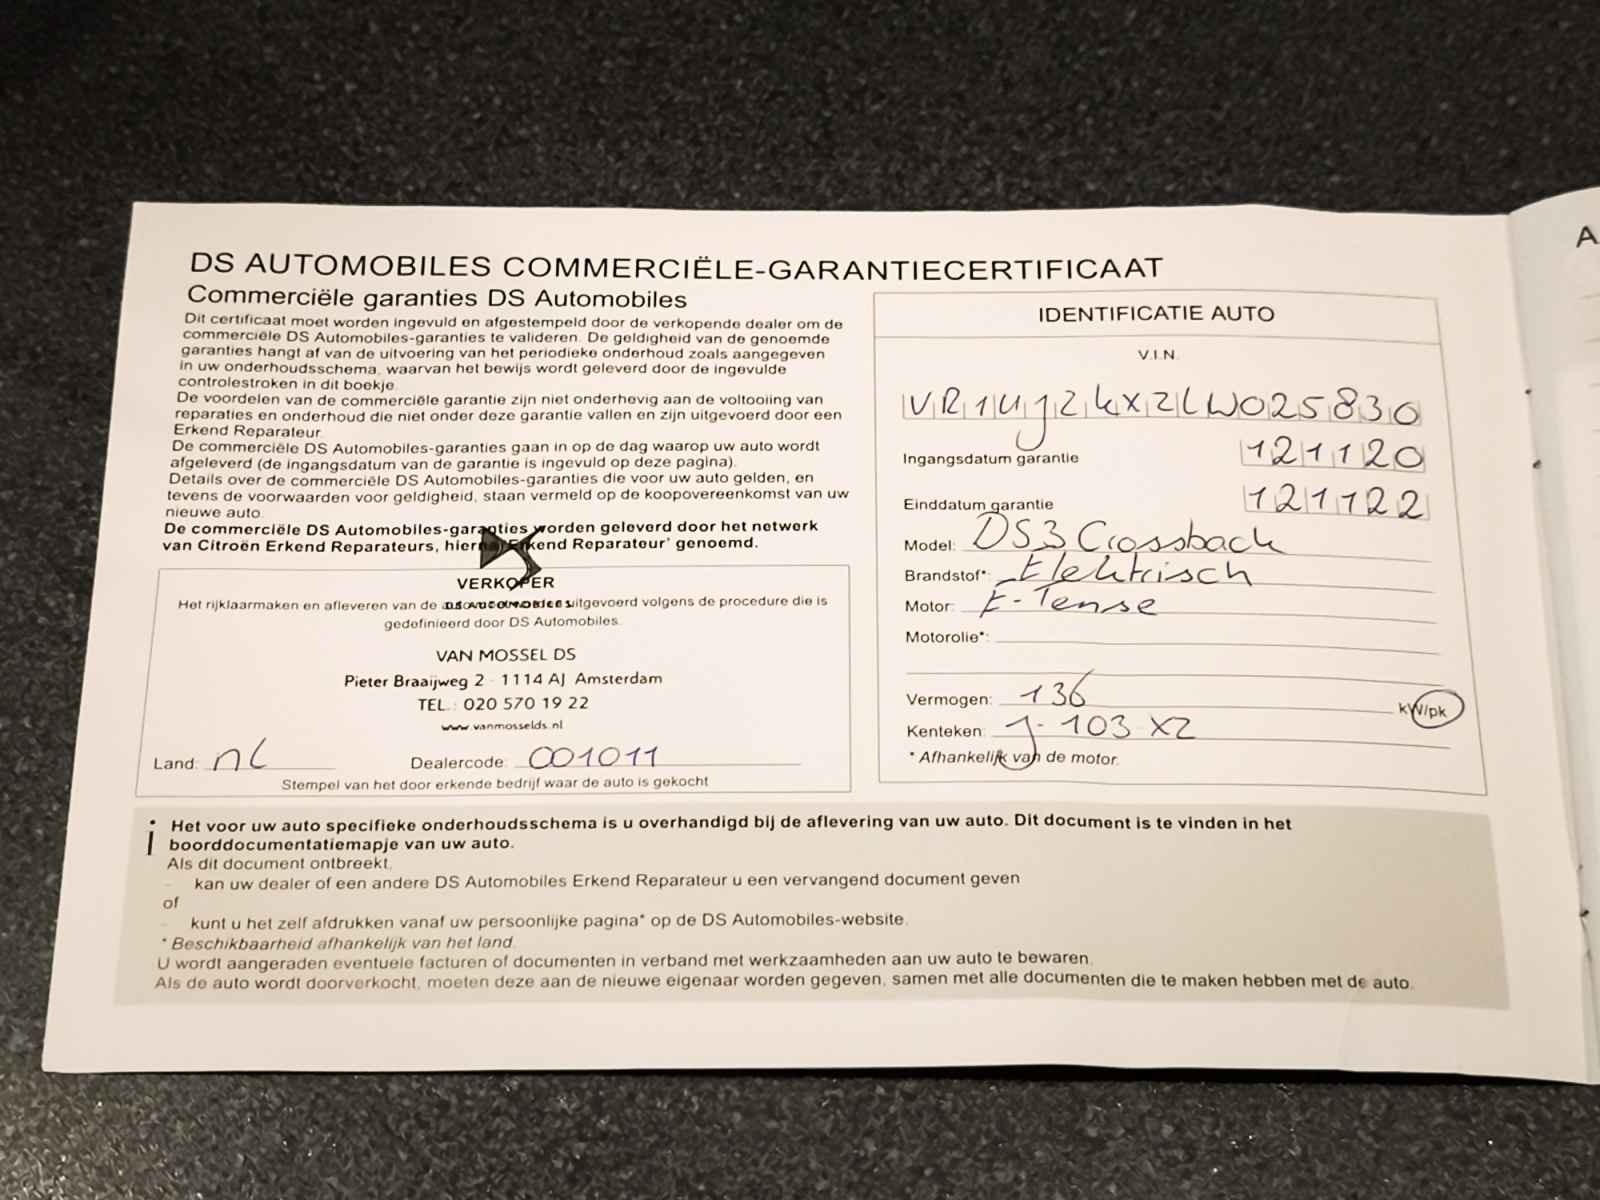 DS AUTOMOBILES COMMERCIËLE-GARANTIECERTIFICAAT
Commerciële garanties DS Automobiles
Dit certificaat moet worden ingevuld en afgestempeld door de verkopende dealer om de
commerciële DS Automobiles-garanties te valideren. De geldigheid van de genoemde
garanties hangt af van de uitvoering van het periodieke onderhoud zoals aangegeven
in uw onderhoudsschema, waarvan het bewijs wordt geleverd door de ingevulde
controlestroken in dit boekje.
De voordelen van de commerciële garantie zijn niet onderhevig aan de voltooiing van
reparaties en onderhoud die niet onder deze garantie vallen en zijn uitgevoerd door een
Erkend Reparateur.
De commerciële DS Automobiles-garanties gaan in op de dag waarop uw auto wordt
afgeleverd (de ingangsdatum van de garantie is ingevuld op deze pagina).
Details over de commerciële DS Automobiles-garanties die voor uw auto gelden, en
tevens de voorwaarden voor geldigheid, staan vermeld op de koopovereenkomst van uw
nieuwe auto.
De commerciële DS Automobiles-garanties worden geleverd door het netwerk
van Citroën Erkend Reparateurs, hierna 'Erkend Reparateur' genoemd.
VERKOPER
Het rijklaarmaken en afleveren van de uitgevoerd volgens de procedure die is
DS AUTOMOBILES
gedefinieerd door DS Automobiles.
VAN MOSSEL DS
Pieter Braaijweg 2 - 1114 AJ Amsterdam
TEL.: 020 570 19 22
www.vanmosselds.nl
Land: NL Dealercode: 001011
Stempel van het door erkende bedrijf waar de auto is gekocht
IDENTIFICATIE AUTO
V.I.N.
VR1UJZKXZLW025830
Ingangsdatum garantie 121120
Einddatum garantie 121122
Model: DS3 Crossback
Brandstof*: Elektrisch
Motor: E-Tense
Motorolie*:
Vermogen: 136 kW/pk
Kenteken: J-103-XZ
* Afhankelijk van de motor.
i Het voor uw auto specifieke onderhoudsschema is u overhandigd bij de aflevering van uw auto. Dit document is te vinden in het
boorddocumentatiemapje van uw auto.
Als dit document ontbreekt,
- kan uw dealer of een andere DS Automobiles Erkend Reparateur u een vervangend document geven
of
- kunt u het zelf afdrukken vanaf uw persoonlijke pagina* op de DS Automobiles-website.
* Beschikbaarheid afhankelijk van het land.
U wordt aangeraden eventuele facturen of documenten in verband met werkzaamheden aan uw auto te bewaren.
Als de auto wordt doorverkocht, moeten deze aan de nieuwe eigenaar worden gegeven, samen met alle documenten die te maken hebben met de auto.